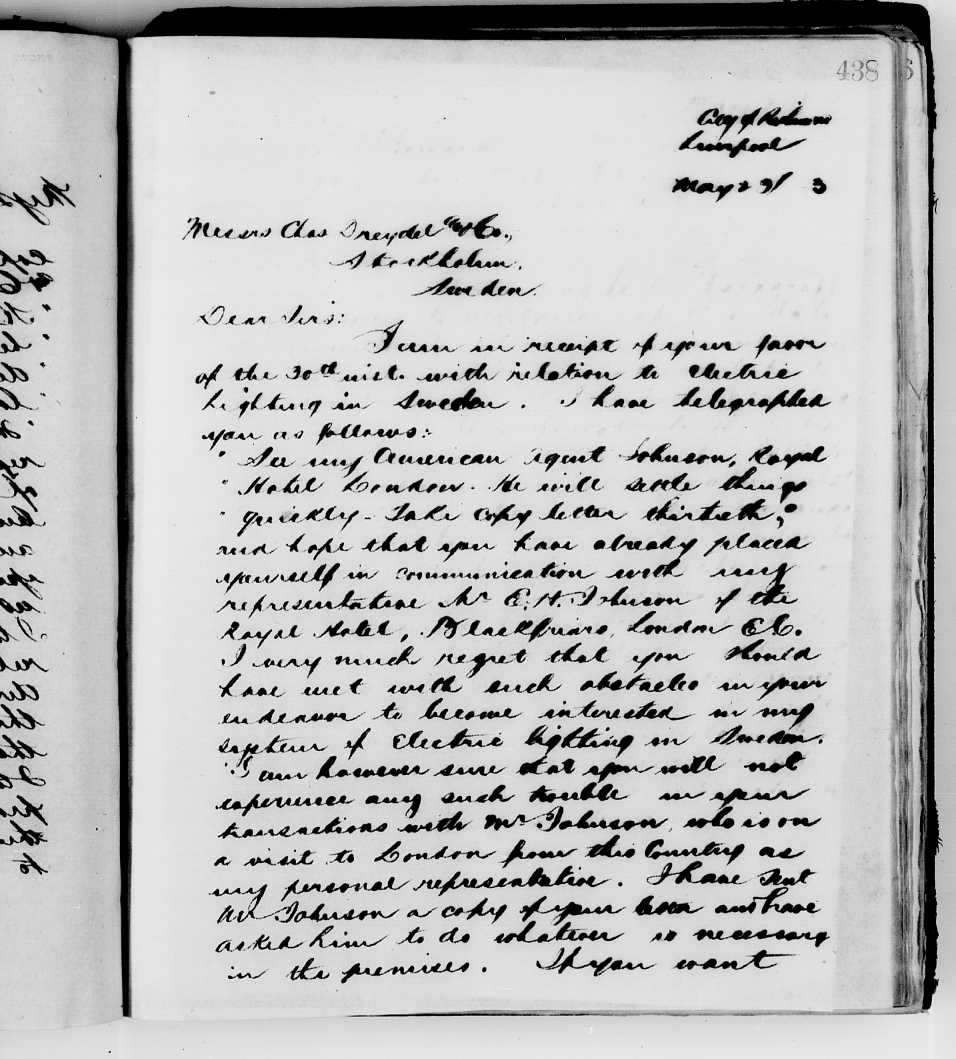 438
City of
Liverpool
May 29/ 3
Messrs Chas Dreydel & Co.,
Stockholm.
Sweden.
Dear Sirs:
I am in receipt of your favor
of the 30th ult. with relation to electric
lighting in Sweden. I have telegraphed
you as follows:
" See my American agent Johnson, Royal
" Hotel London. He will settle things
" quickly - Take copy letter thirtieth,"
and hope that you have already placed
yourself in communication with my
representative Mr E. H. Johnson of the
Royal Hotel, Blackfriars, London E.C.
I very much regret that you should
have met with such obstacles in your
endeavor to become interested in my
system of Electric lighting in Sweden.
I am however sure that you will not
experience any such trouble in your
transactions with Mr Johnson, who is on
a visit to London from this Country as
my personal representative. I have sent
Mr Johnson a copy of your letter and have
asked him to do whatever is necessary
in the premises. If you want